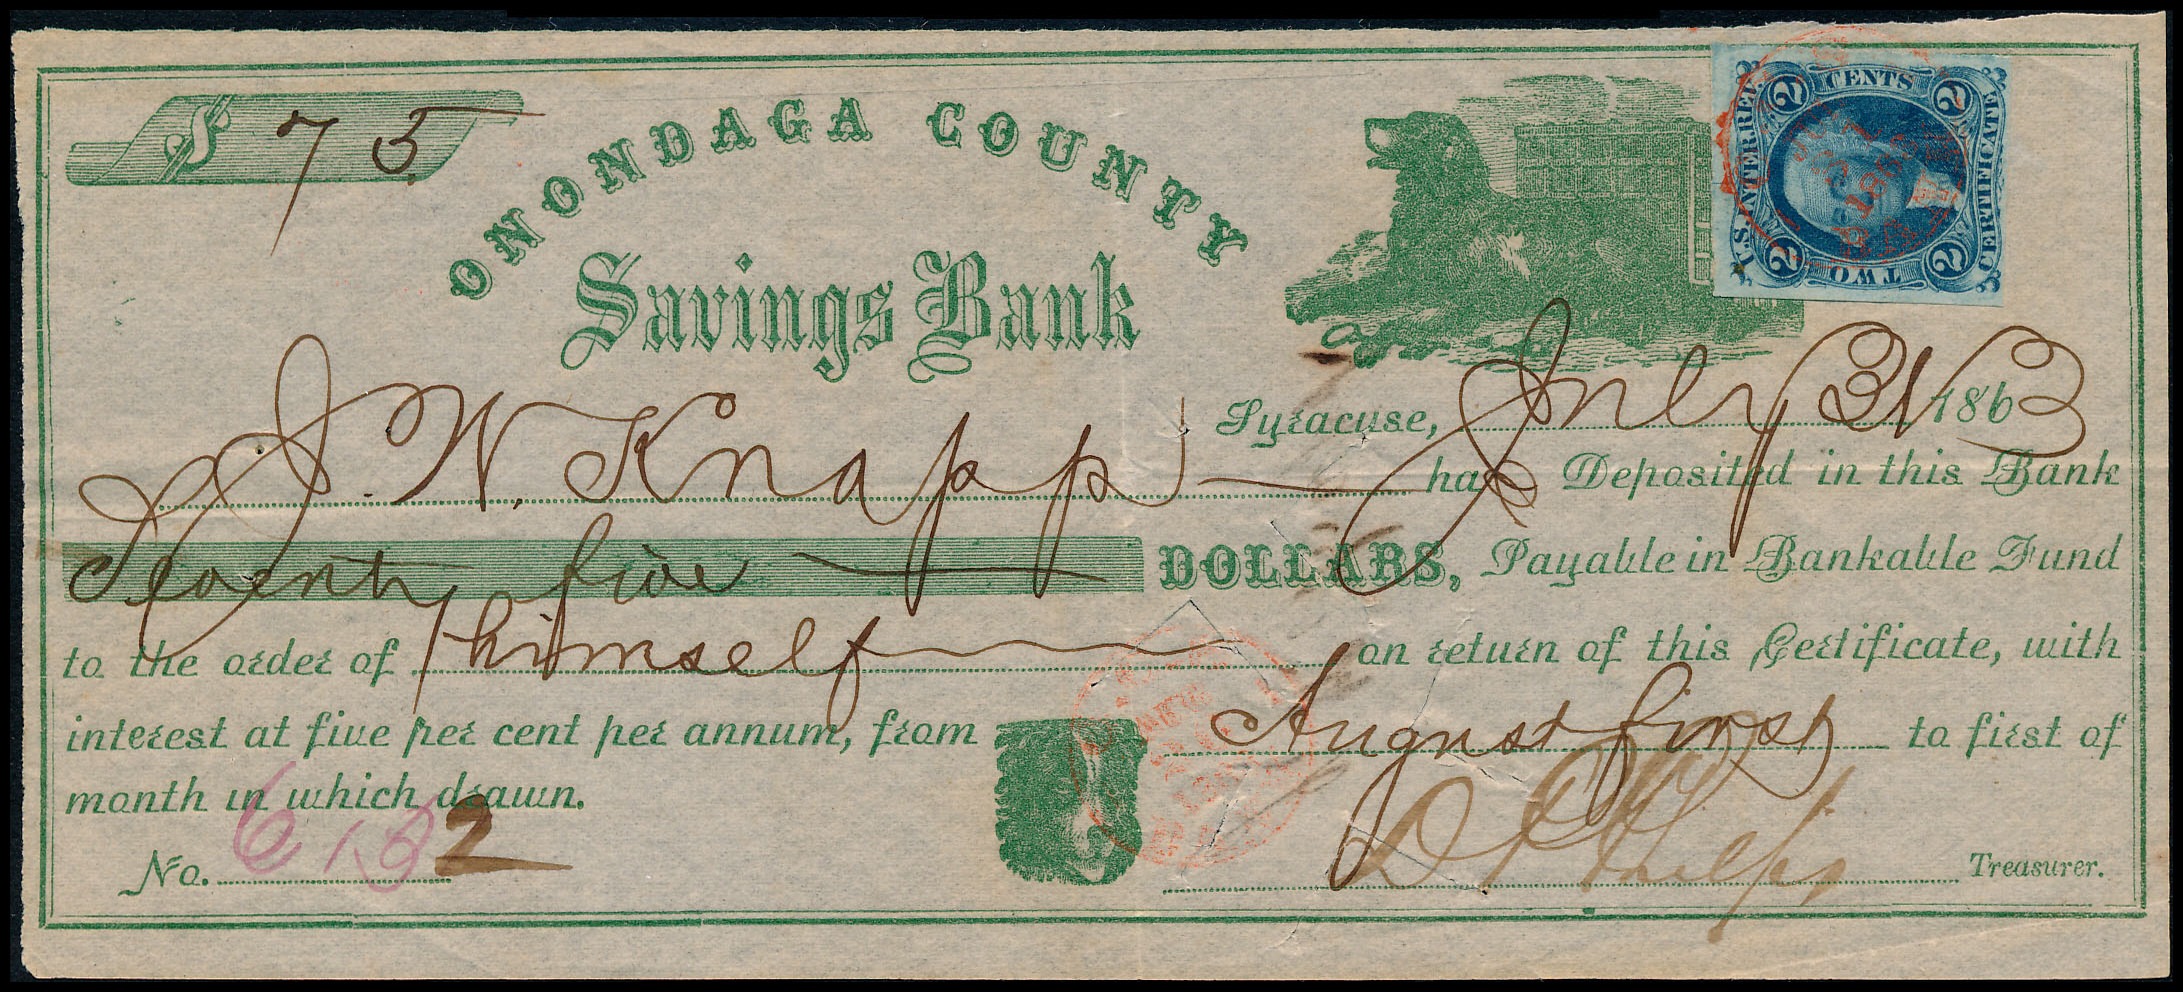 $ 75
ONONDAGA COUNTY
Savings Bank
U.S. INTER. REV.
2 CENTS 2
CERTIFICATE
2 TWO 2
Syracuse, July 31 1863
J. W. Knapp has Deposited in this Bank
Seventy five DOLLARS, Payable in Bankable Fund
to the order of himself on return of this Certificate, with
interest at five per cent per annum, from August first to first of
month in which drawn.
No. 6132 Phelps Treasurer.